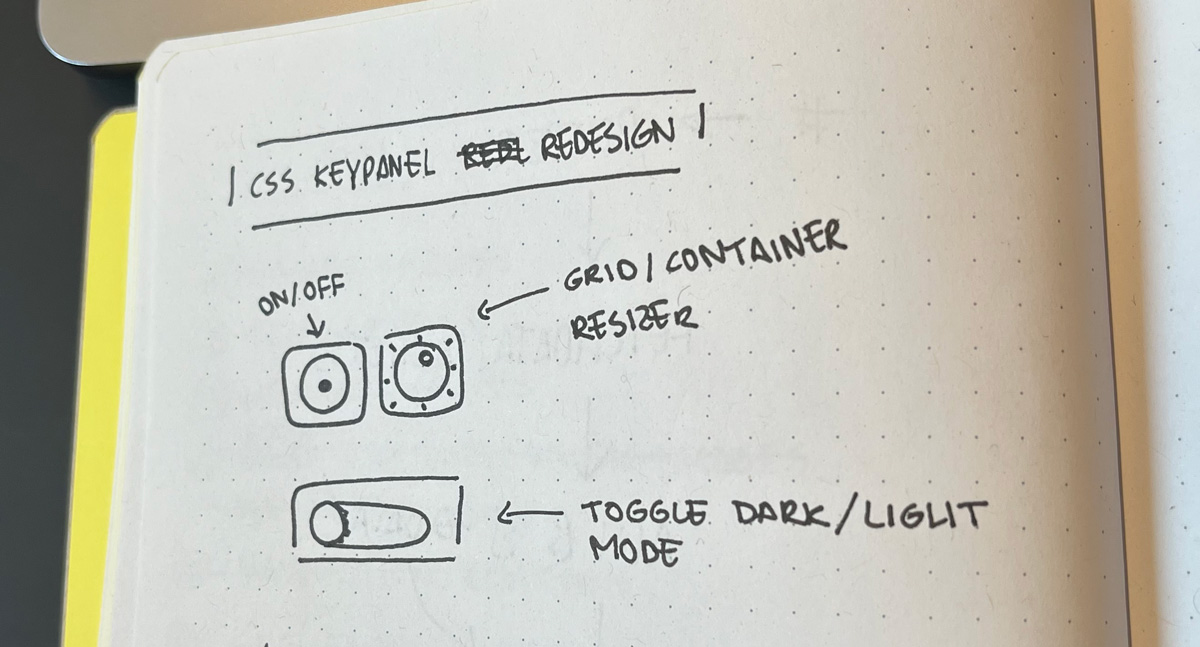 CSS KEYPANEL REDESIGN
ON/OFF
GRID/CONTAINER
RESIZER
TOGGLE DARK/LIGLIT
MODE